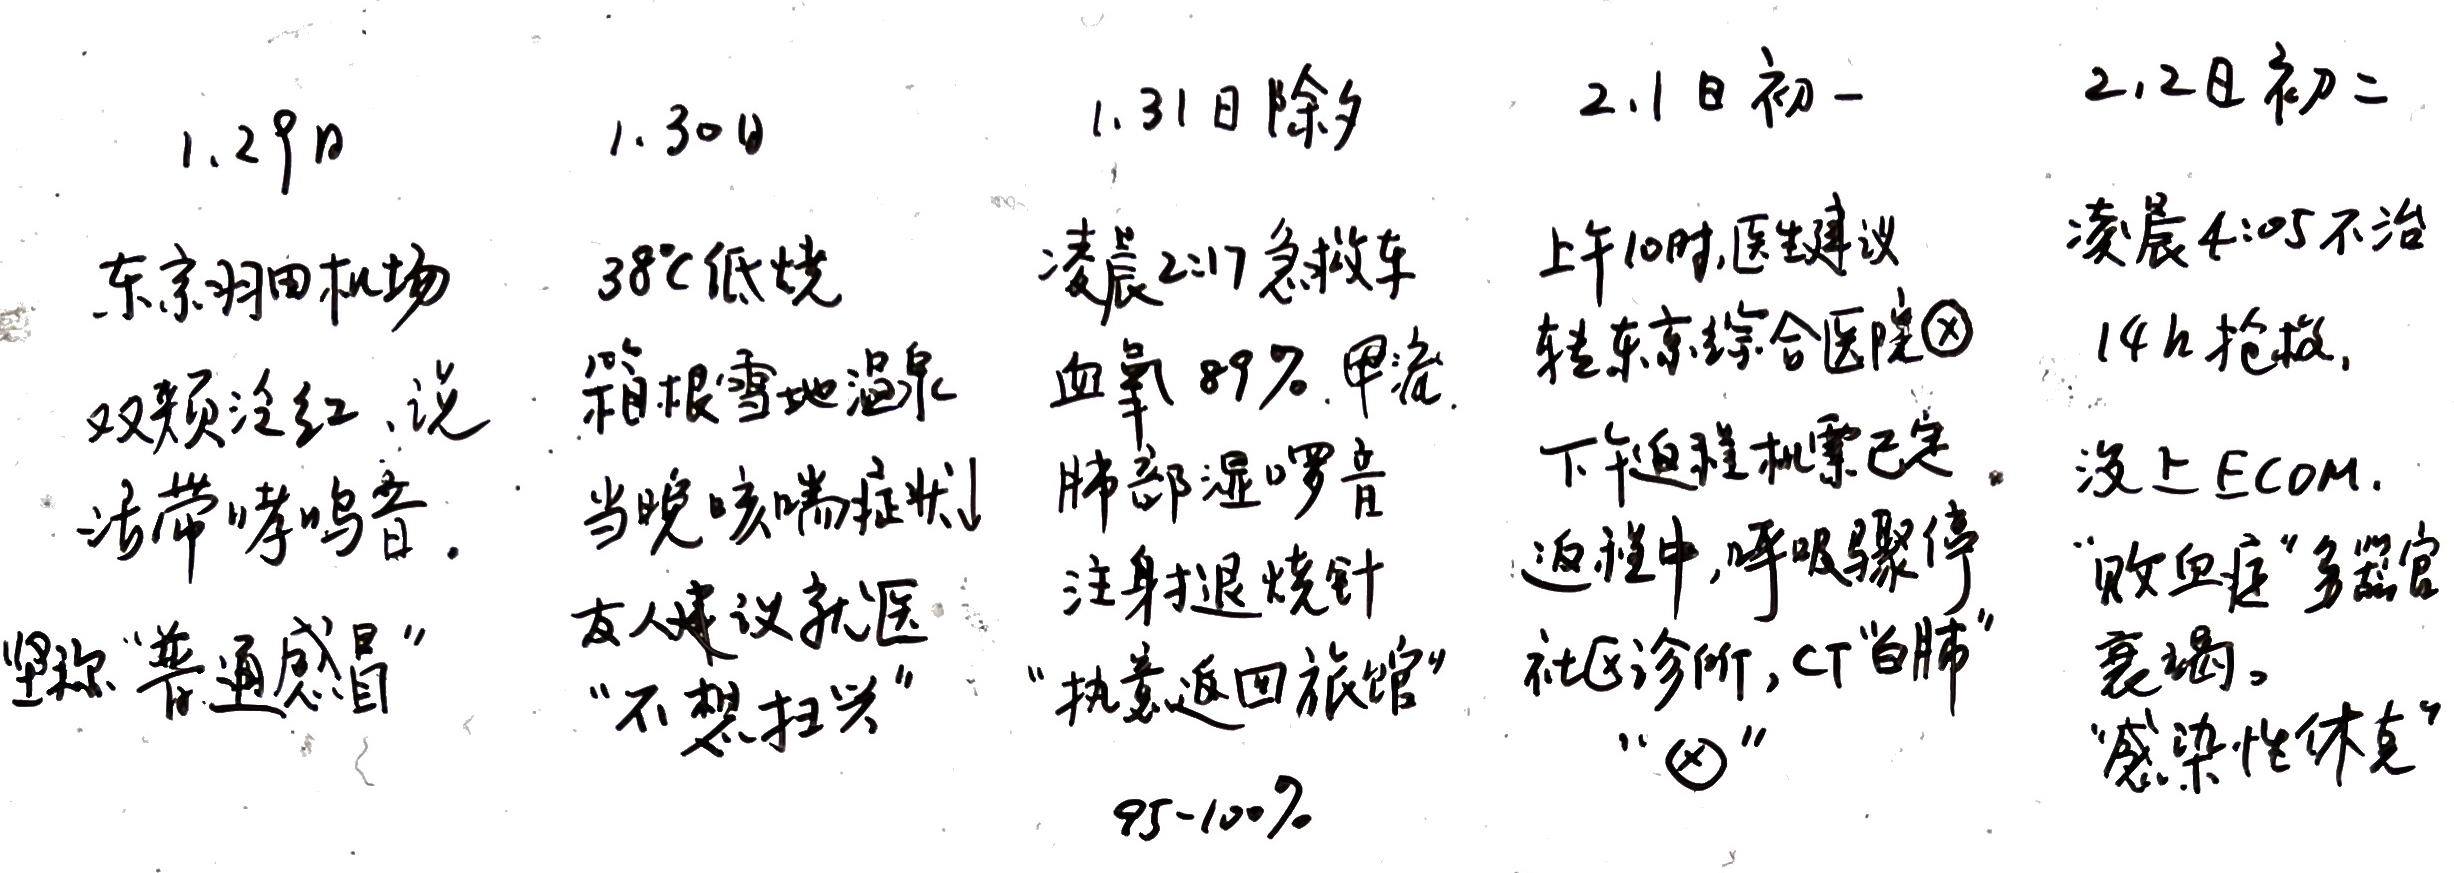 1.29日
东京羽田机场
双颊泛红、说
话带哮鸣音.
坚称"普通感冒"
1.30日
38℃低烧
箱根雪地温泉
当晚咳喘症状↓
友人建议就医
"不想扫兴"
1.31日除夕
凌晨2:17急救车
血氧89%.甲流.
肺部湿啰音
注射退烧针
"执意返回旅馆"
95-100%
2.1日初一
上午10时,医生建议
转东京综合医院ⓧ
下午返程机票已定.
返程中,呼吸骤停
社区诊所,CT"白肺"
"ⓧ"
2.2日初二
凌晨4:05不治
14h抢救,
没上ECOM.
"败血症"多器官
衰竭。
"感染性休克"